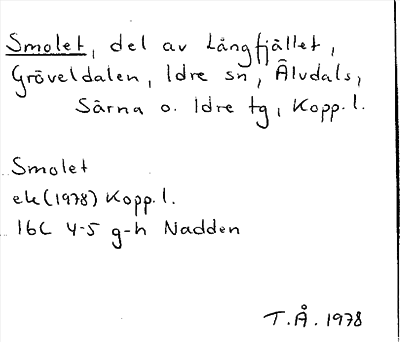 Smolet, del av Långfjället,
Gröveldalen, Idre sn, Älvdals,
Särna o. Idre tg, Kopp. l.
Smolet
ek (1978) Kopp. l.
16C 4-5 g-h Nadden
T.Å. 1978